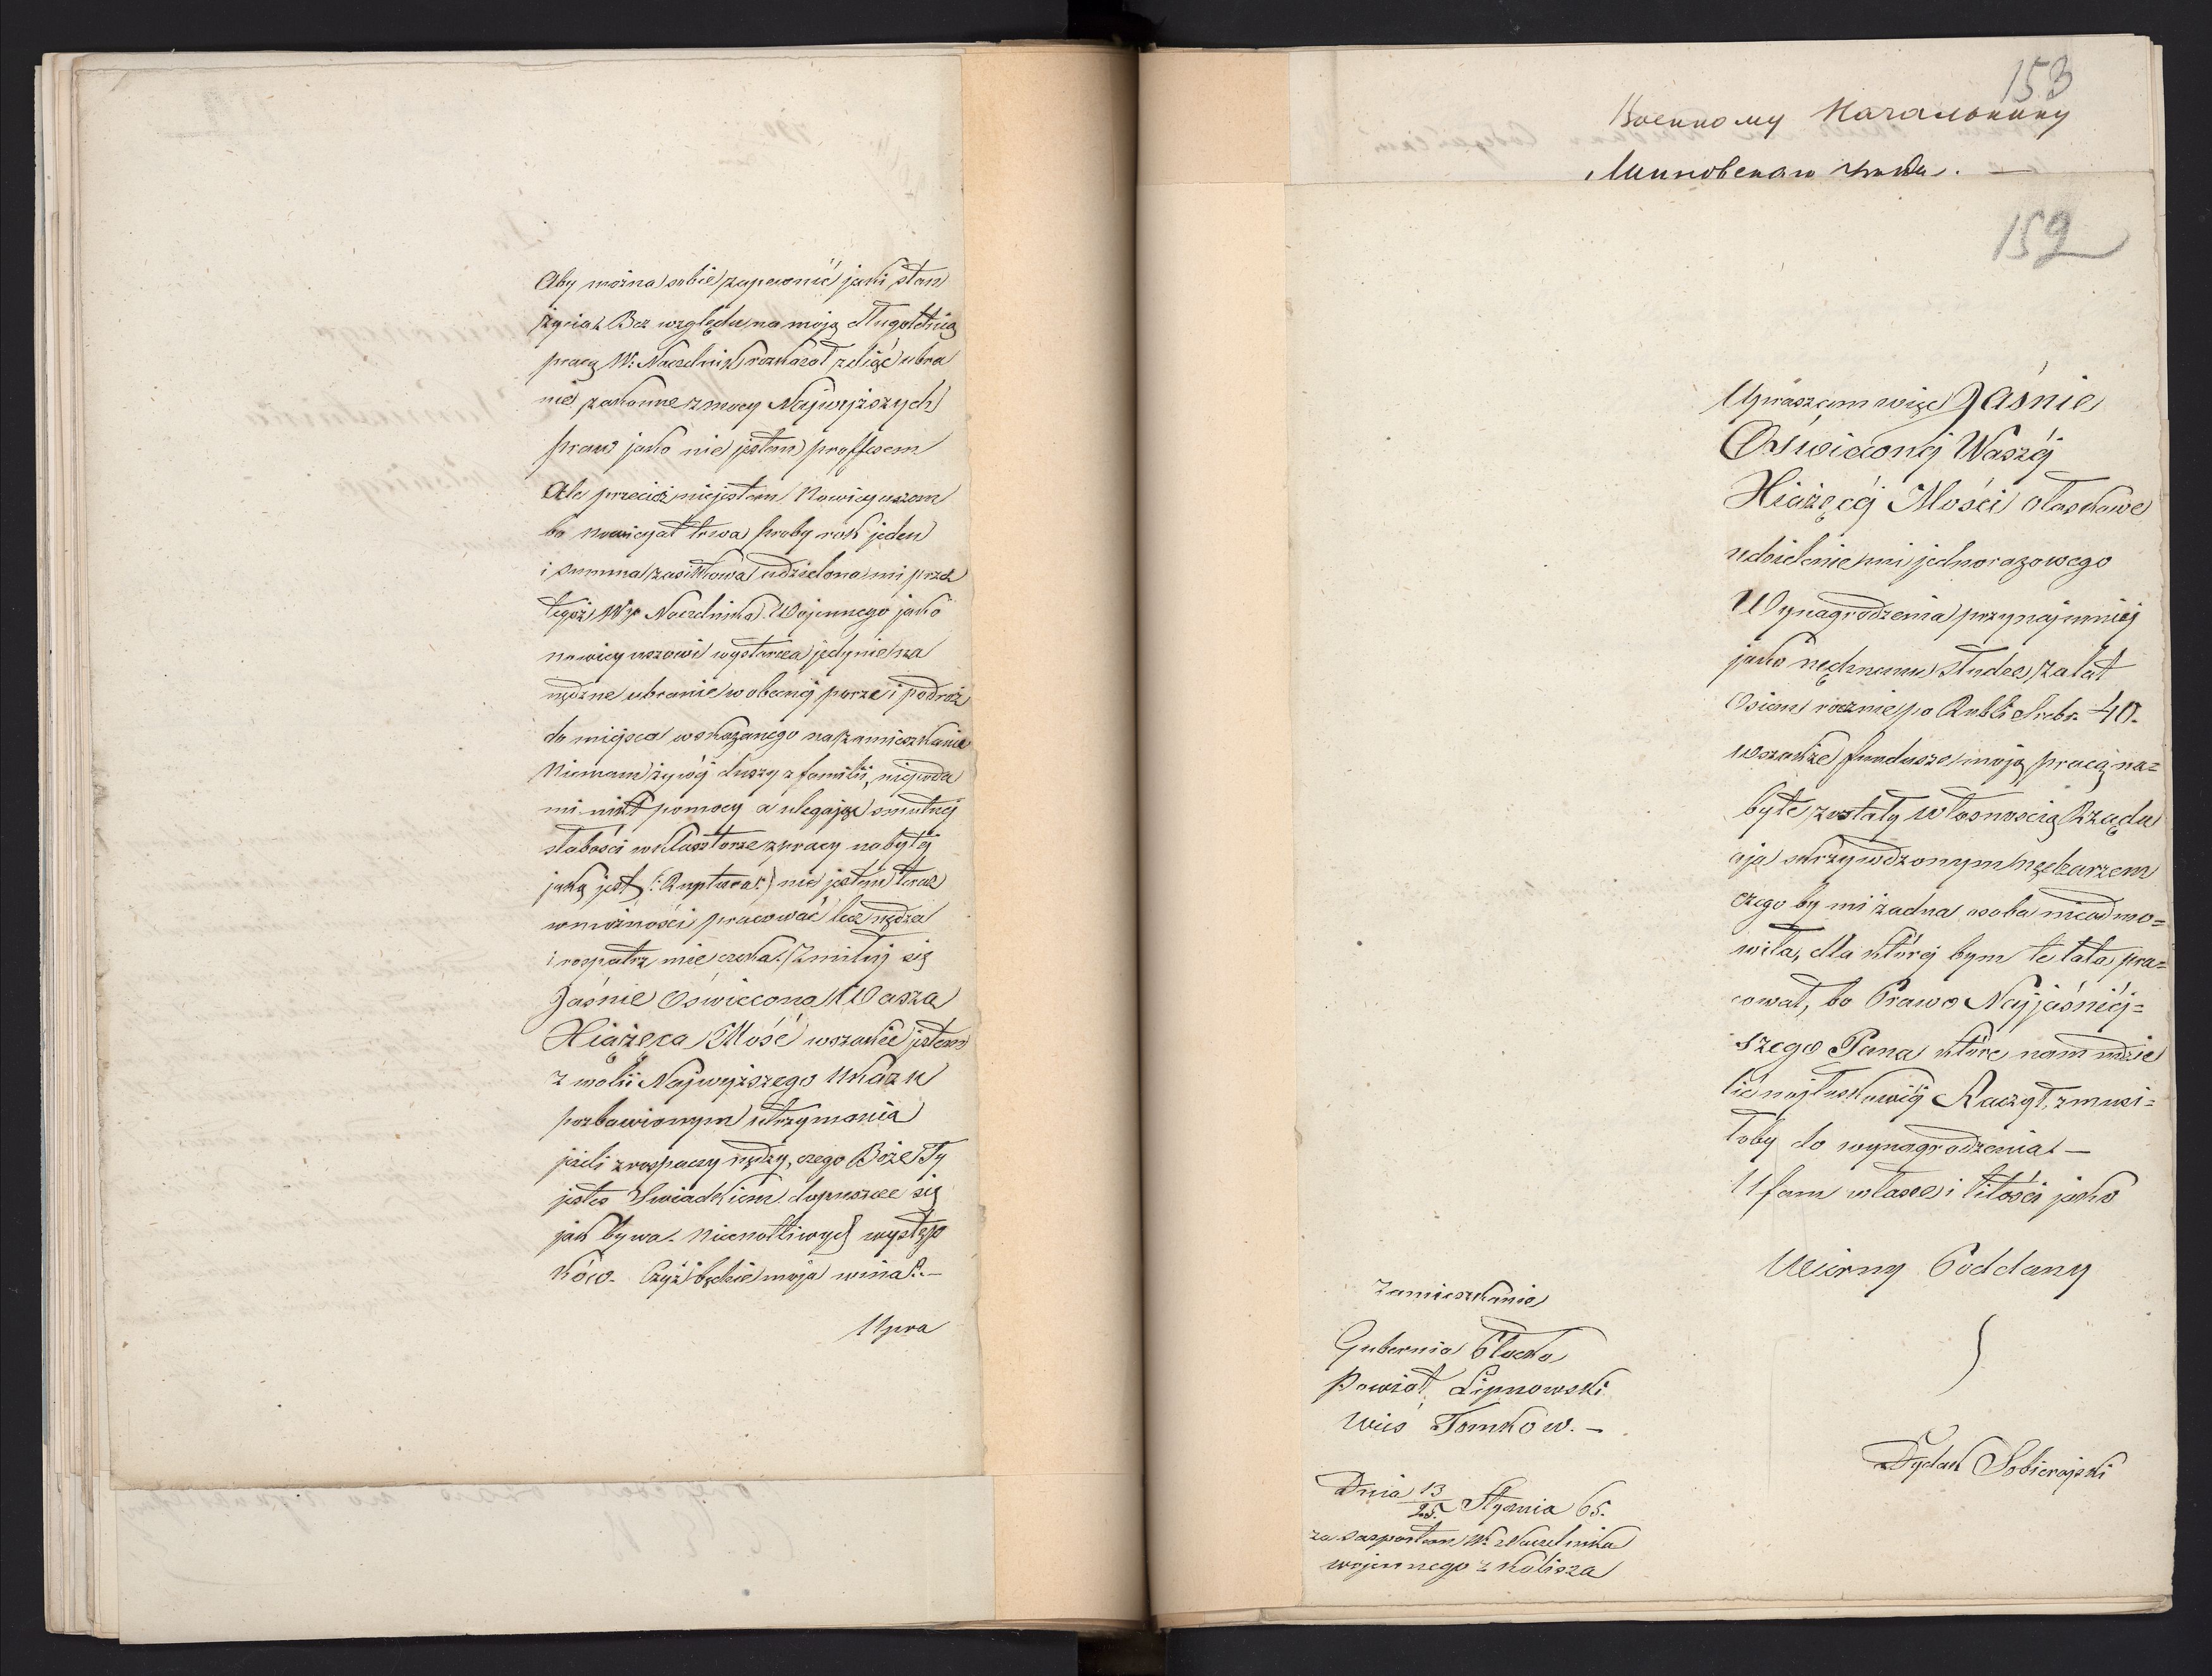 Aby można sobie zapewnić jaki stan
życia. Bez względu na moją długoletnią
pracę W: Naczelnik rozkazał zdjąć ubra
nie zakonne z mocy Najwyższych
praw jako nie jestem proffesem
Ale przecież niejestem Nowicyuszem
bo nowicyat trwa proby rok jeden
i summa zasiłkowa udzielona mi przez
tegoż Wgo Naczelnika Wojennego jako
nowicyuszowi wystarcza jedynie na
nędzne ubranie w obecnej porze i podróż
do miejsca wskazanego na zamieszkanie
Niemam żywéj duszy z familii, nieda
mi nikt pomocy a ulegając smutnej
słabości w klasztorze z pracy nabytéj
jaką jest (:Ruptura:) nie jestem teraz
w możności pracować lecz nędza
i rospatrz mie czeka. Zmiłuj się
Jaśnie Oświecona Wasza
Xiążęca Mość wszakże jestem
z wolii Najwyższego Ukazu
pozbawionym utrzymania
jeżli z rospaczy nędzy, czego Boże Ty
jesteś Swiadkiem dopuszcze się
jak bywa. Niecnotliwych występ
ków. Czyż będzie moja wina?.—
Upra
153
Военному Начальнику
Липновскаго уѣзда. —
152
Upraszam więc Jaśnie
Oświeconej Waszéj
Xiążęcéj Mości o łaskawe
udzielenie mi jednorazowego
Wynagrodzenia przynajmniej
jako nędznemu słudze za lat
Osiem rocznie po Rubli Srebr. 40.
wszakże fundusze moją pracą na=
byte zostały własnoscią Rządu
a ja skrzywdzonym nędzarzem
czego by mi żadna osoba nieodmo=
wiła, dla któréj bym te lata pra=
cował, bo Prawo Najjaśniéj=
szego Pana które nam udzie
lić najłaskawiéj Raczył, zmusi=
łoby do wynagrodzenia. —
Ufam w łasce i litości jako
Wierny Poddany
Dydak Sobierajski
Zamieszkanie
Gubernia Płocka
Powiat Lipnowski
Wieś Tomkow. —
Dnia 13/25 Stycznia 65.
za Paszportem W: Naczelnika
wojennego z Kalisza